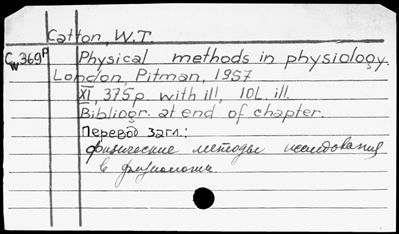 Catton, W.T.
Cw369P Physical methods in physiology.
London, Pitman, 1957
XI, 375p. with ill, 10L. ill.
Bibliogr. at end of chapter.
Перевод загл.:
физические методы исследования
в физиологии